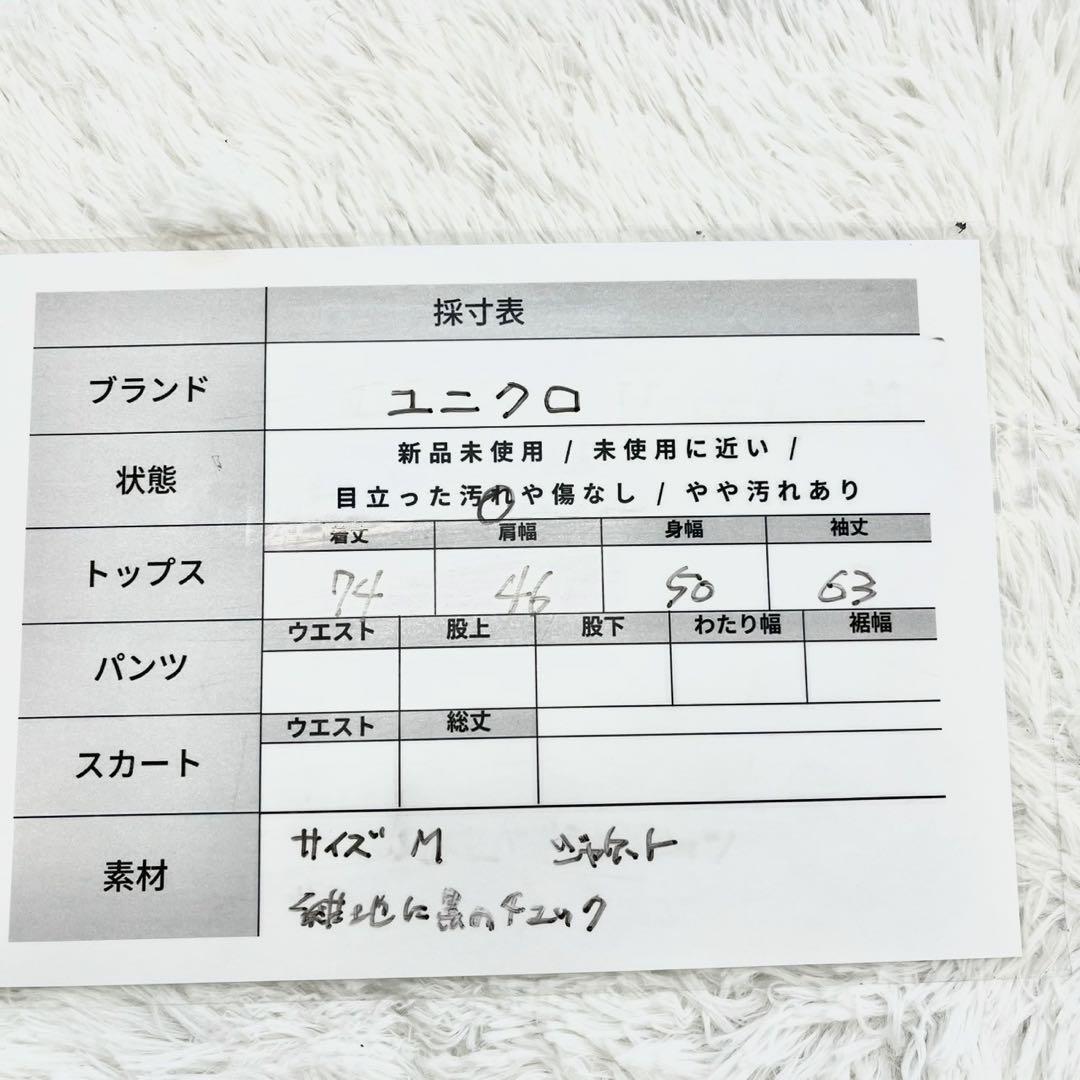 採寸表
ブランド ユニクロ
状態 新品未使用 / 未使用に近い /
目立った汚れや傷なし / やや汚れあり
トップス 着丈 肩幅 身幅 袖丈
74 46 50 63
パンツ ウエスト 股上 股下 わたり幅 裾幅
スカート ウエスト 総丈
素材 サイズ M ジャケット
地に黒のチェック